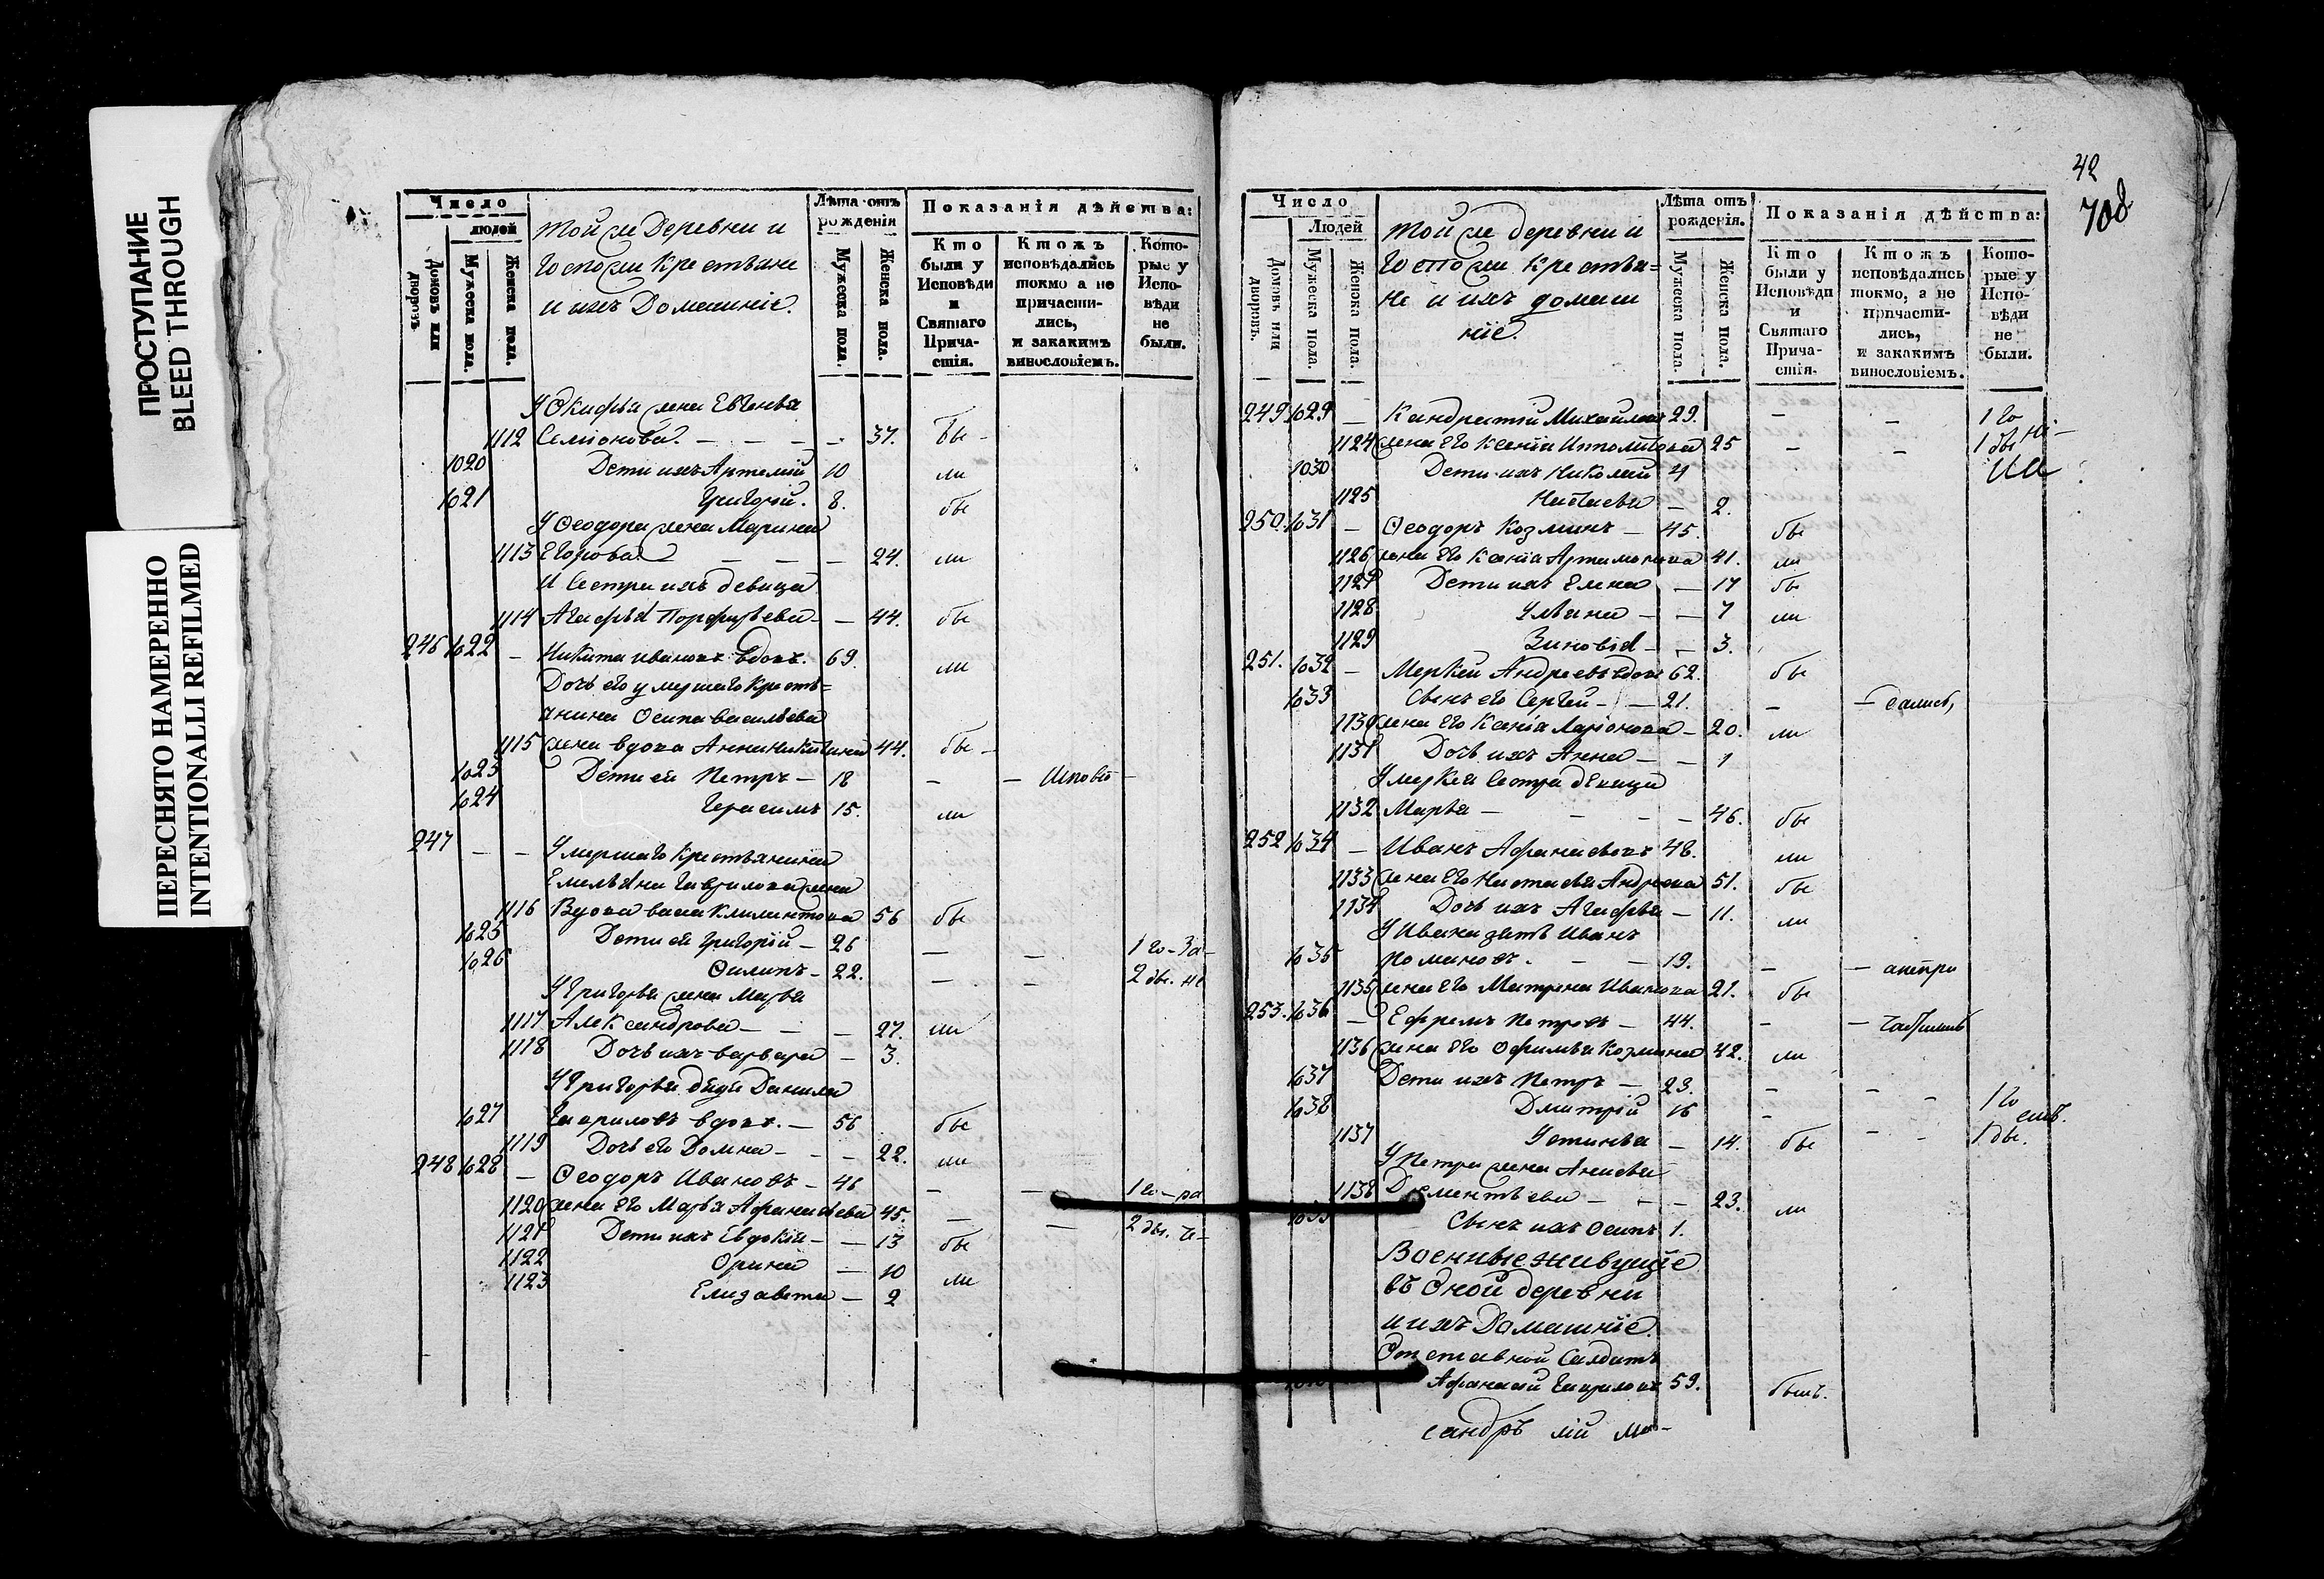 ПРОСТУПАНИЕ
BLEED THROUGH
ПЕРЕСНЯТО НАМЕРЕННО
INTENTIONALLI REFILMED
Число
людей
Домовъ или дворовъ
Мужеска пола.
Женска пола.
Той же Деревни и
Госпожи Крестьяне
и ихъ Домашніе.
Лѣта отъ рожденія
Мужеска пола.
Женска пола.
Показанія дѣйства:
Кто были у Исповѣди и Святаго Прича-стія.
Ктожъ исповѣдались токмо а не причасти-лись, и закакимъ винословіемъ.
Кото-рые у Испо-вѣди не были.
У Окифья жена Евгенья
1112 Семіонова. — — — 37. бы-
1020 Дети ихъ Артемій 10 ли
1021 Григорій. 8. бы
У Ѳеодора жена Марина
1113 Егорова — — — 24. ли
И Сестра ихъ девица
1114 Агафья Порфирьева — 44. бы
246 1022 — Никита Ивановъ вдовъ. 69. ли
Дочь его умершаго Кресть=
янина Осипа Васильева
1115 жена вдова Анна Никитина 44. бы-
1023 Дети ея Петръ — 18 — —
1024 Герасимъ 15. ли
247 — — Умершаго Крестьянина
Емельяна Гаврилова жена
1116 Вдова Васа Климентова 56 бы
1025 Дети ея Григорій — 26 — — 1го-За-
1026 Филипъ — 22. — — 2 бы. не
У Григорья жена Марья
1117 Александрова — — — 27. ли
1118 Дочь ихъ Варвара — 3.
У Григорья дядя Данила
1027 Гавриловъ вдовъ. — 56 бы
1119 Дочь его Домна — — — 22. ли
248 1028 — Ѳеодоръ Ивановъ — 46 — — 1го-ра
1120 жена его Марья Афанасьева 45. — — 2 бы. че-
1121 Дети ихъ Евдокія — — 13 бы
1122 Орина — 10
1123 Елизавета — 2 ли
42
708
Число
Людей
Домовъ или дворовъ.
Мужеска пола.
Женска пола.
Той же деревни и
Госпожи Крестья=
не и ихъ домаш
ніе.
Лѣта отъ рожденія.
Мужеска пола.
Женска пола.
Показанія дѣйства:
Кто были у Исповѣди и Святаго Прича-стія.
Ктожъ исповѣдались токмо, а не причасти-лись, и закакимъ винословіемъ.
Кото-рые у Испо-вѣди не были.
249. 1029 — Кандратій Михайловъ 29. — — 1го
1124 жена его Ксенія Ипполитова 25 — — 1 бы
1030 Дети ихъ Николай 4
1125 Настасья — 2.
250. 1031 — Ѳеодоръ Козминъ — 45. бы
1126 жена его Ксенія Артамонова 41. ли
1127 Дети ихъ Елена — 17 бы
1128 Ульяна — — 7 ли
1129 Зиновія — — 3.
251. 1032 — Меркей Андреевъ вдовъ 62. бы
1033 Сынъ его Сергей — — 21. — —
1130 жена его Ксенія Ларіонова — 20. ли
1131 Дочь ихъ Анна — — 1
У Меркея Сестра девица
1132 Марья — — — — 46. бы
252 1034 — Иванъ Афанасьевъ 48. ли
1133 жена его Настасья Андреева 51. бы
1134 Дочь ихъ Агафья — 11. ли
У Ивана зять Иванъ
1035 Поминовъ. — — 19. — —
1135 жена его Матрена Иванова 21. бы
253. 1036 — Ефремъ Петровъ — 44. — —
1136 жена его Офимья Козмина 42. ли
1037 Дети ихъ Петръ — 23. — — — 1го
1038 Дмитрій 16 — — — 1 бы.
1137 Устинья — 14. бы
У Петра жена Анисья
1138 Дементьева — — — 23. ли
Сынъ ихъ Осипъ 1.
Военные живущіе
въ Оной деревни
и ихъ Домашніе.
Отставной Салдатъ
Афанасій Гавриловъ 59. былъ.
сандръ лій Ма-